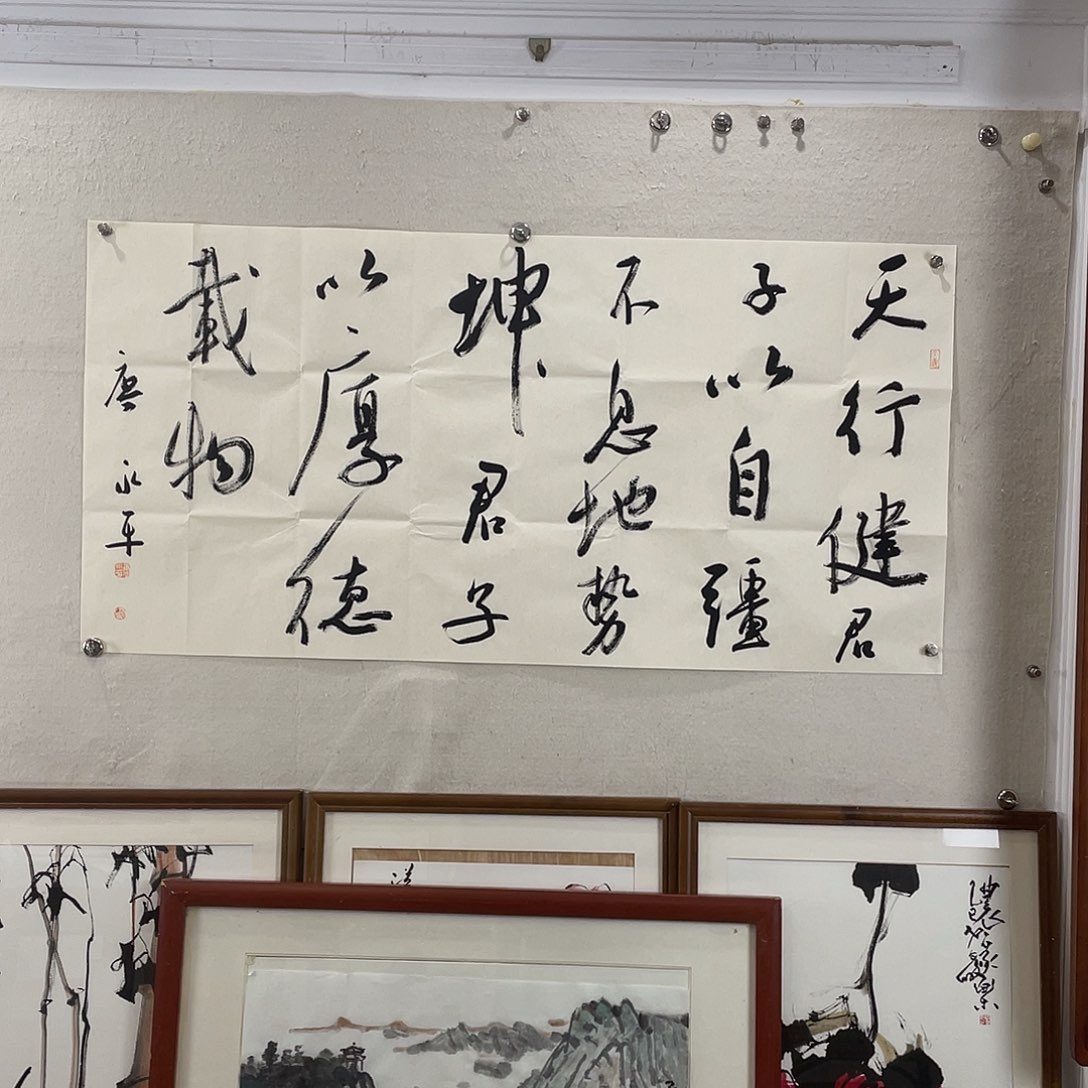 天行健君
子以自彊
不息地勢
坤君子
以厚德
載物
唐永平